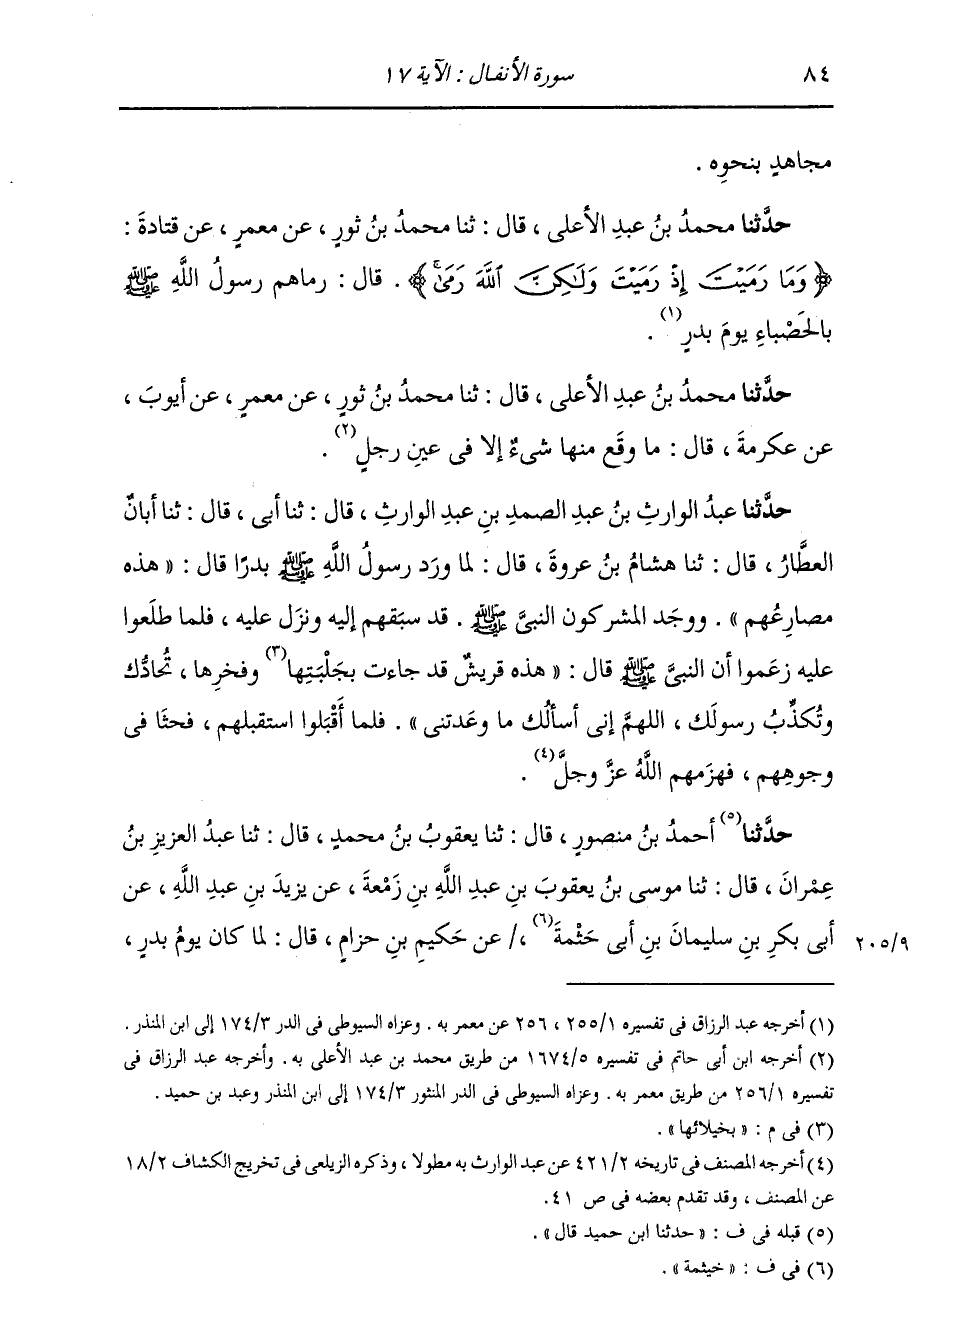 ٨٤ سورة الأنفال : الآية ١٧
مجاهدٍ بنحوِه .
حدَّثنا محمدُ بنُ عبدِ الأعلى ، قال : ثنا محمدُ بنُ ثورٍ ، عن معمرٍ ، عن قتادةَ :
﴿ وَمَا رَمَيْتَ إِذْ رَمَيْتَ وَلَٰكِنَّ ٱللَّهَ رَمَىٰ ﴾ . قال : رماهم رسولُ اللَّهِ ﷺ
بالحَصْباءِ يومَ بدرٍ (١) .
حدَّثنا محمدُ بنُ عبدِ الأعلى ، قال : ثنا محمدُ بنُ ثورٍ ، عن معمرٍ ، عن أيوبَ ،
عن عكرمةَ ، قال : ما وقَع منها شىءٌ إلا فى عينِ رجلٍ (٢) .
حدَّثنا عبدُ الوارثِ بنُ عبدِ الصمدِ بنِ عبدِ الوارثِ ، قال : ثنا أبى ، قال : ثنا أبانٌ
العطَّارُ ، قال : ثنا هشامُ بنُ عروةَ ، قال : لما ورَد رسولُ اللَّهِ ﷺ بدرًا قال : « هذه
مصارِعُهم » . ووجَد المشركون النبىَّ ﷺ . قد سبَقهم إليه ونزَل عليه ، فلما طلَعوا
عليه زعَموا أن النبىَّ ﷺ قال : « هذه قريشٌ قد جاءت بجَلْبَتِها (٣) وفخرِها ، تُحادُّك
وتُكذِّبُ رسولَك ، اللهمَّ إنى أسألُك ما وعَدتنى » . فلما أَقْبَلوا استقبلهم ، فحثَا فى
وجوهِهم ، فهزَمهم اللَّهُ عزَّ وجلَّ (٤) .
حدَّثنا (٥) أحمدُ بنُ منصورٍ ، قال : ثنا يعقوبُ بنُ محمدٍ ، قال : ثنا عبدُ العزيزِ بنُ
عِمْرانَ ، قال : ثنا موسى بنُ يعقوبَ بنِ عبدِ اللَّهِ بنِ زَمْعةَ ، عن يزيدَ بنِ عبدِ اللَّهِ ، عن
٢٠٥/٩ أبى بكرِ بنِ سليمانَ بنِ أبى حَثْمةَ (٦) ،/ عن حَكيمِ بنِ حزامٍ ، قال : لما كان يومُ بدرٍ ،
(١) أخرجه عبد الرزاق فى تفسيره ٢٥٥/١ ، ٢٥٦ عن معمر به . وعزاه السيوطى فى الدر ١٧٤/٣ إلى ابن المنذر .
(٢) أخرجه ابن أبى حاتم فى تفسيره ١٦٧٤/٥ من طريق محمد بن عبد الأعلى به . وأخرجه عبد الرزاق فى
تفسيره ٢٥٦/١ من طريق معمر به . وعزاه السيوطى فى الدر المنثور ١٧٤/٣ إلى ابن المنذر وعبد بن حميد .
(٣) فى م : « بخيلائها » .
(٤) أخرجه المصنف فى تاريخه ٤٢١/٢ عن عبد الوارث به مطولا ، وذكره الزيلعى فى تخريج الكشاف ١٨/٢
عن المصنف ، وقد تقدم بعضه فى ص ٤١ .
(٥) قبله فى ف : « حدثنا ابن حميد قال » .
(٦) فى ف : « خيثمة » .